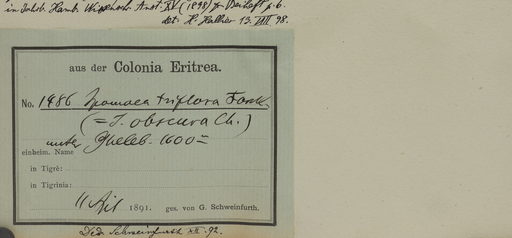 in Jahrb. Hamb. Wissensch. Anst. XV (1898) 3. Beiheft p. 6.
det. H. Hallier 13. VIII 98.
aus der Colonia Eritrea.
No. 1486 Ipomoea triflora Forsk.
(= I. obscura Ch.)
unter Gheleb. 1600
einheim. Name
in Tigrè:
in Tigrinia:
11 1891. ges. von G. Schweinfurth.
Ded. Schweinfurth XII. 92.